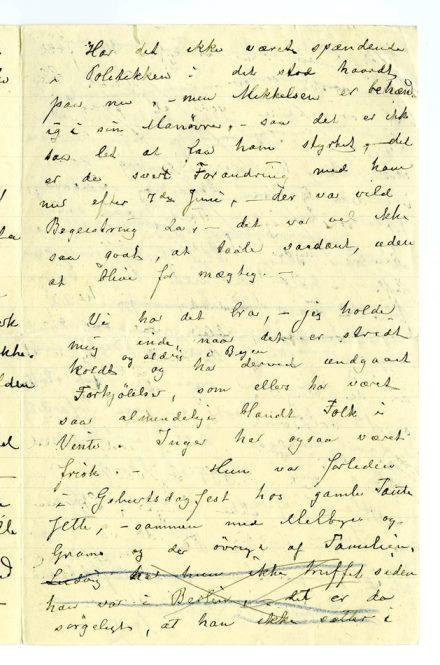 Har det ikke været spændende
i Politikken i det stod haardt
paa nu, – men Mikkelsen er behænd
ig i sin Manøvre, – saa det er ikke
saa let at faa ham styrtet, – det
er da svært Forandring med ham
nu efter 7de Juni, – der va vild
Begeistring da, – det var vel ikke
saa godt, at taale saadant, uden
at blive for mægtig. –
Vi ha det bra, – jeg holde
mig inde, naar det er stridt
koldt og har derved undgaaet
og aldrig i Byen
Forkjølelse, som ellers har været
saa almindelige blandt Folk i
Vente. Inger har ogsaa været
frisk. – Hun var forleden
i Geburtsdagsfest hos gamle Tante
Jette, – sammen med Melbyes og
Grams og de øvrige af Familien.
Ludvig har hun ikke truffet siden
han var i Berlin, – det er da
sørgeligt, at han ikke sætter i